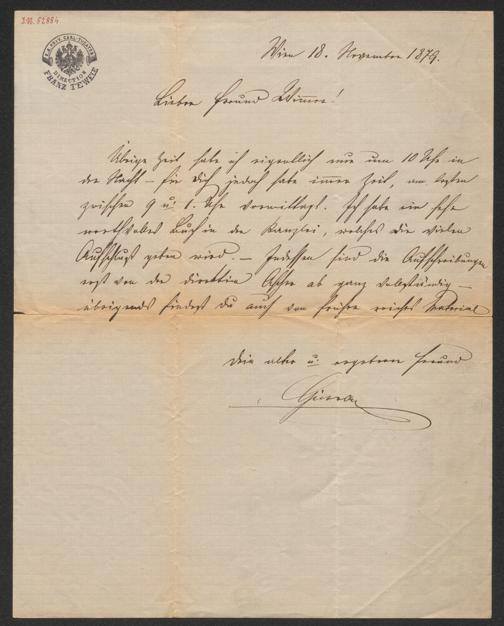 I.N. 62884
K. K. PRIV. CARL-THEATER
DIRECTION
FRANZ TEWELE
Wien 18. November 1879.
Lieber Freund Wimmer!
Übrige Zeit habe ich eigentlich nur um 10 Uhr in
der Nacht – für Dich jedoch habe immer Zeit, am besten
zwischen 9 u. 1. Uhr vormittags. Ich habe ein sehr
werthvolles Buch in der Kanzlei, welches dir vielen
Aufschluß geben wird. – Indessen sind die Aufschreibungen
erst von der direktion Ascher ab ganz vollständig –
übrigends findest du auch von früher reiches Material
Dein alter u. ergebener Freund